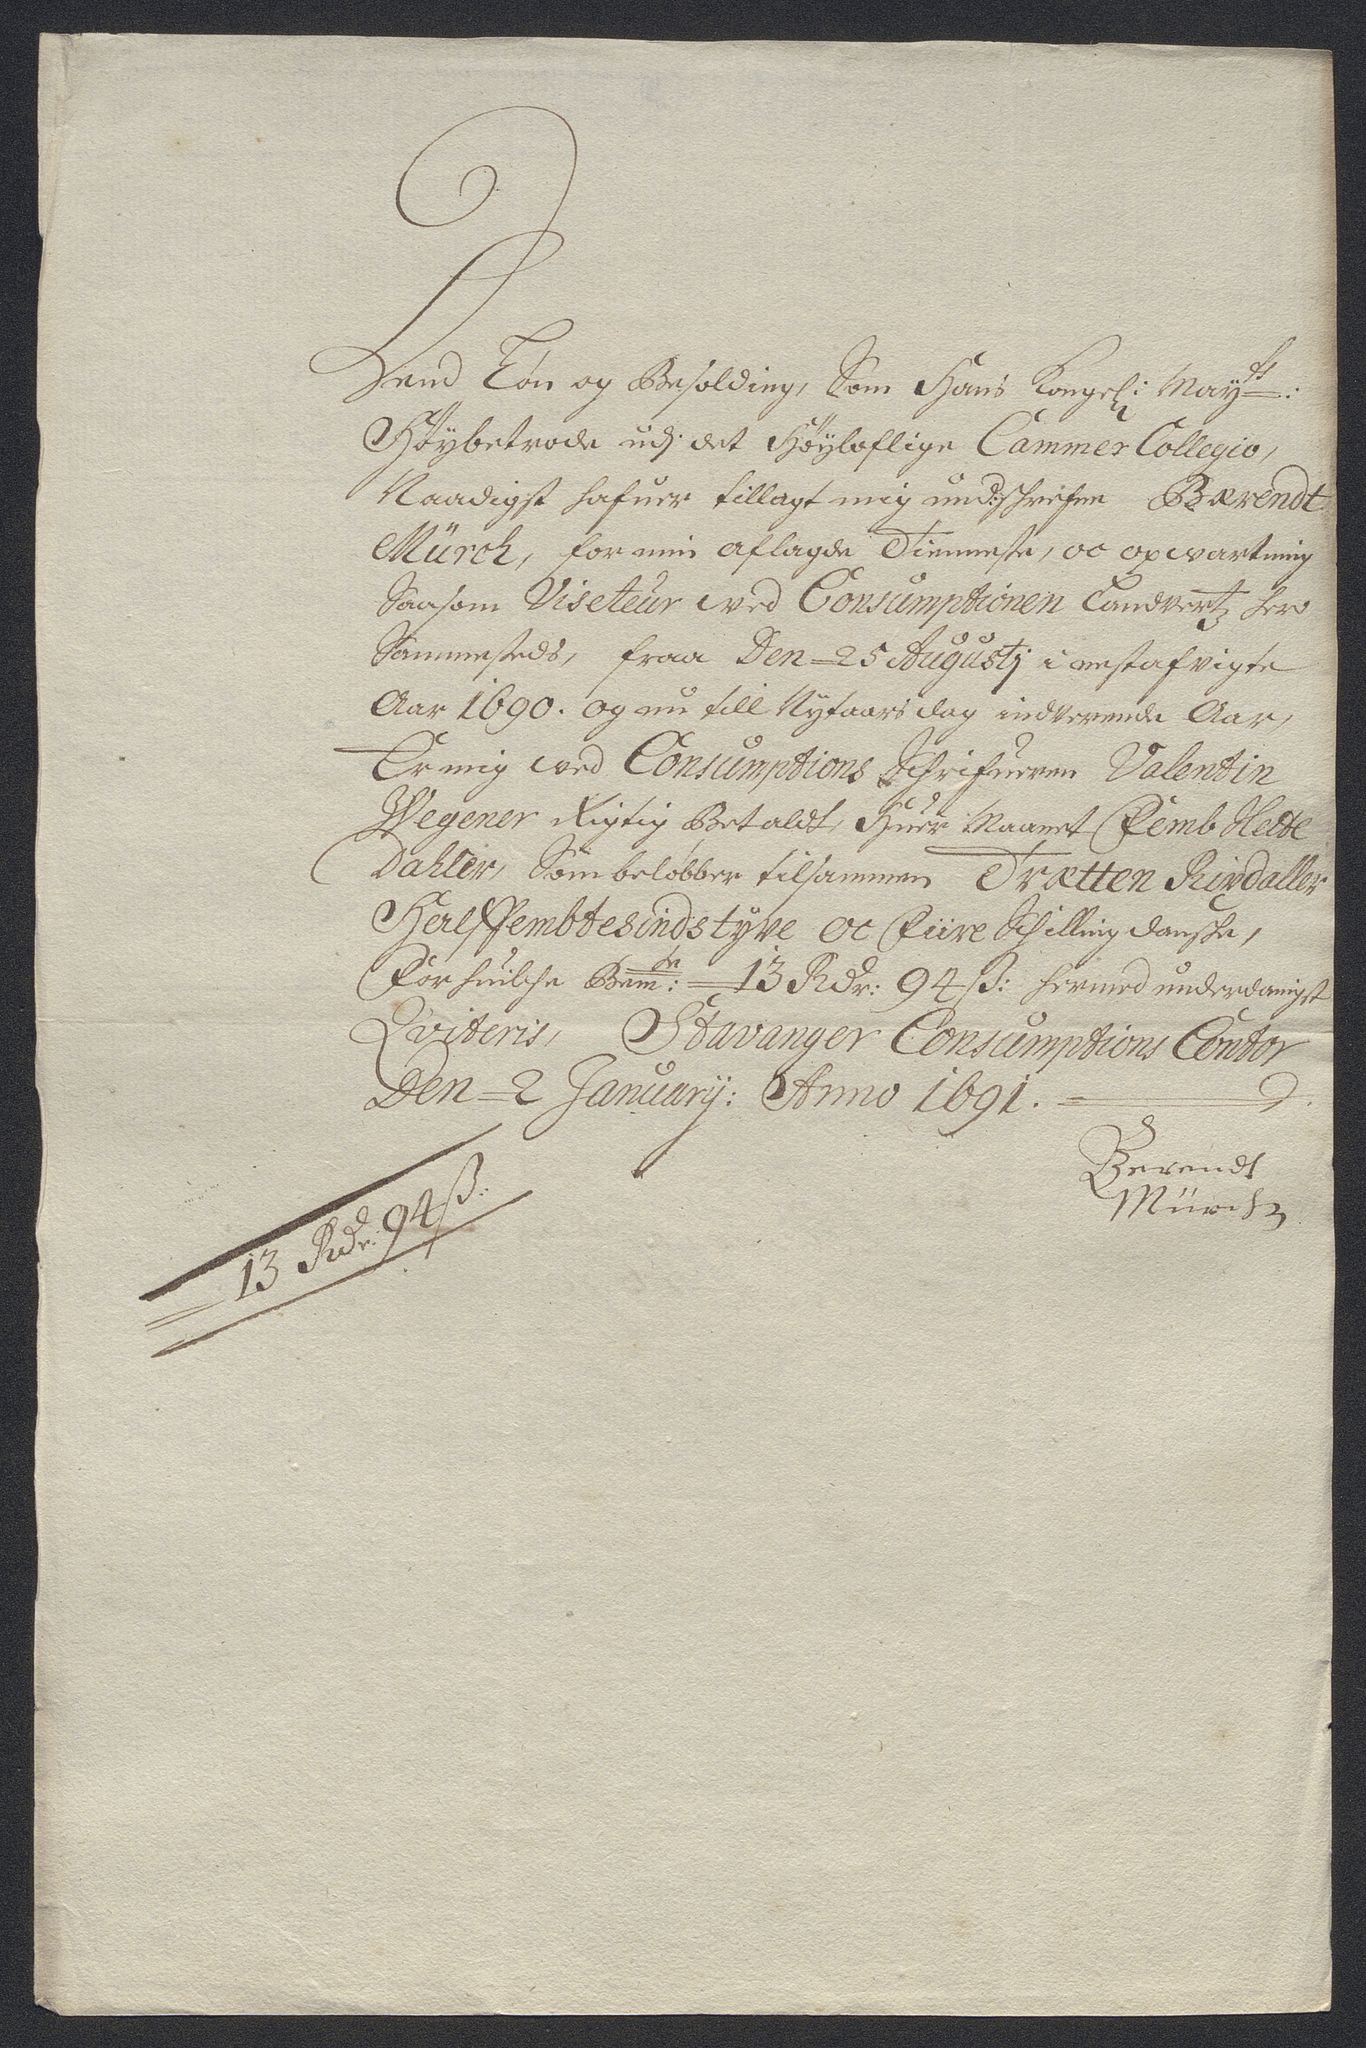 Dend Løn og Besolding, Som Hans Kongel: Mayts:
Høybetrode udj det Høyloflige Cammer Collegio,
Naadigst hafuer tillagt mig undschrefne Bærendt
Mürch, for min aflagde Tienneste, oc opvartning
Saasom Viseteur ved Consumptionen Landvertz her
Sammesteds, fraa Den 25 Augustj i nestafvigte
Aar 1690. og nu till Nytaarsdag indverende Aar,
Er mig ved Consumptions Schrifueren Valentin
Wegener Rigtig Betaldt, Huer Maanet Femb Slette
Dahler, Som beløbber tilsammen Trætten Rixdaller
Halffembtesindstyve oc Fiire Schilling danske,
For huilche Bemte: 13 Rdr: 94 ß: hermed underdanigst
Qviteris, Stavanger Consumptions Contor
Den 2 January: Anno 1691.
Berendt
Mürch
13 Rdr: 94 ß: